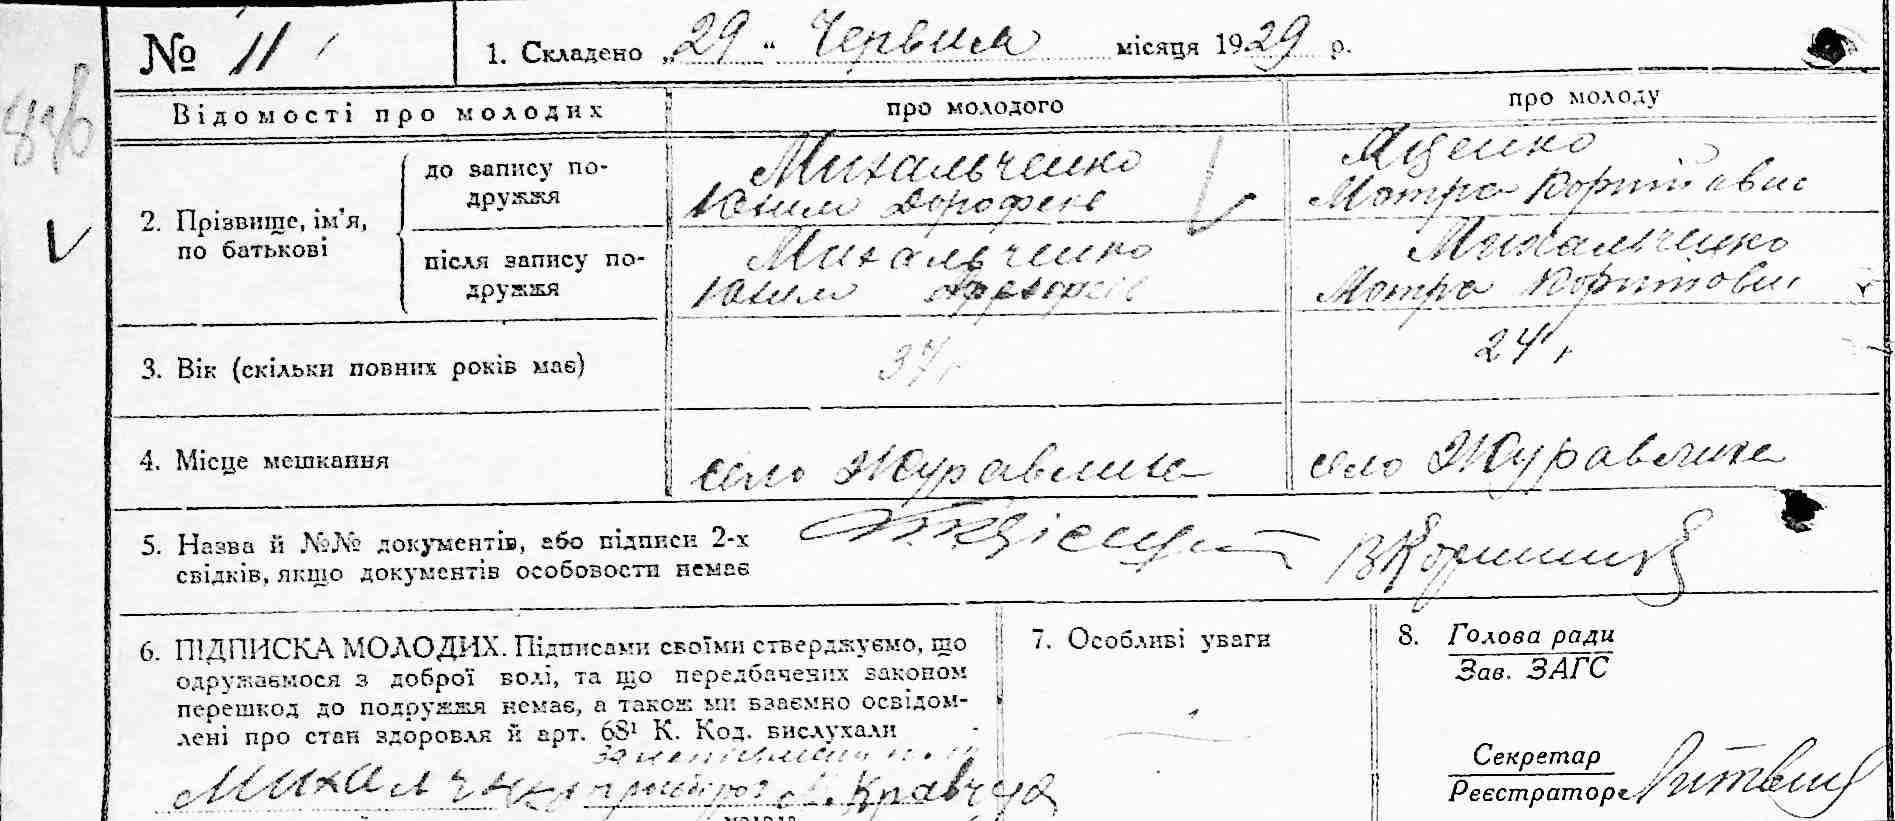 № 11
1. Складено „29“ Червня місяця 1929 р.
Відомості про молодих
про молодого
про молоду
2. Прізвище, ім’я, по батькові
до запису по-
дружжя
Михальченко
Юхим Дорофеев
Яценко
Мотра
після запису по-
дружжя
Михальченко
Юхим
Михальченко
Мотра
3. Вік (скільки повних років має)
37 г
24 г
4. Місце мешкання
село Журавлиха
село Журавлиха
5. Назва й №№ документів, або підписи 2-х
свідків, якщо документів особовости немає
6. ПІДПИСКА МОЛОДИХ. Підписами своїми стверджуємо, що
одружаємося з доброї волі, та що передбачених законом
перешкод до подружжя немає, а також ми взаємно освідом-
лені про стан здоровля й арт. 68¹ К. Код. вислухали
Кравчук
7. Особливі уваги
8. Голова ради
Зав. ЗАГС
Секретар
Реєстратор Литвин